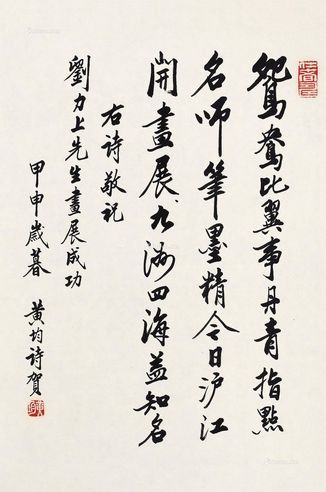 鴛鴦比翼事丹青指點
名师筆墨精今日沪江
開畫展九洲四海益知名
右詩敬祝
劉力上先生畫展成功
甲申歲暮 黃均詩賀